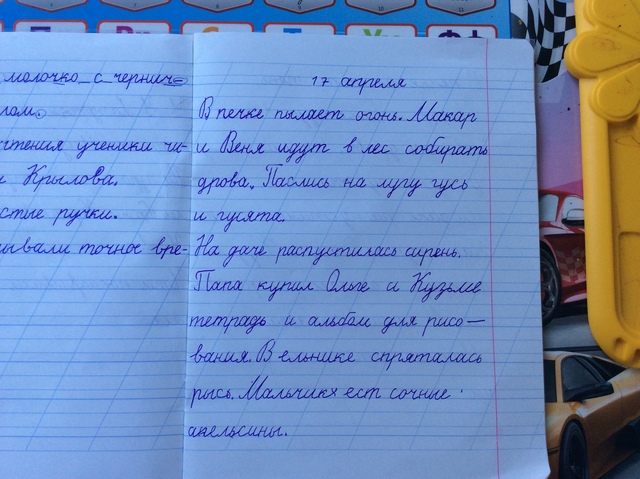 молочко с чернич=
лом.
чтения ученики чи-
и Крылова.
стые ручки.
ывали точное вре-
17 апреля
В печке пылает огонь. Макар
и Веня идут в лес собирать
дрова. Паслись на лугу гусь
и гусята.
На даче распустилась сирень.
Папа купил Ольге и Кузьме
тетрадь и альбом для рисо-
вания. В ельнике спряталась
рысь. Мальчик ест сочные
апельсины.